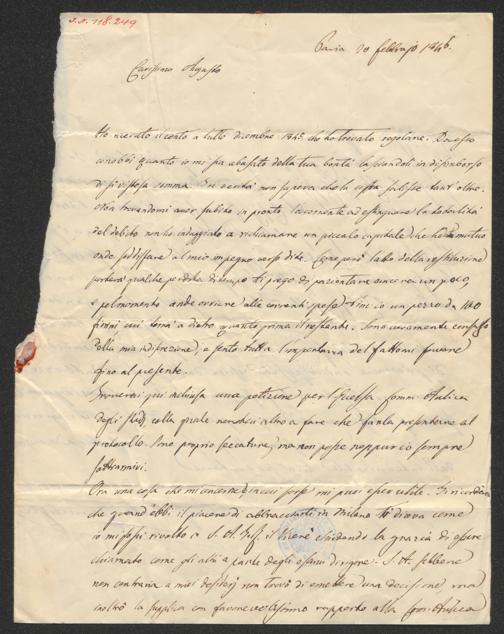 J.N. 118.249
Pavia 20 febbrajo 1846.
Carissimo Augusto
Ho ricevuto il conto a tutto dicembre 1845 che ho trovato regolare. Da esso
conobbi quanto io mi sia abusato della tua bontà lasciandoti in disborso
di sì vistosa somma. In verità non sapeva che la cifra salisse tant'oltre.
Non trovandomi aver subito in pronto l'occorrente ad estinguere la totalità
del debito non ho indugiato a richiamare un piccolo capitale che ho a mutuo
onde soddisfare al mio impegno verso di te. Come però l'atto della restituzione
porterà qualche perdita di tempo ti prego di pazientare ancora un poco,
e pel momento onde ovviare alle correnti spese t'invio un pezzo da 100
fiorini cui terrà dietro quanto prima il restante. Sono veramente confuso
della mia indiscrezione, e sento tutta l'importanza del fattomi favore
fino al presente.
Troverai qui inclusa una petizione per l'Eccelsa Comm. Aulica
degli Studj colla quale non hai altro a fare che farla presentare al
protocollo. Sono proprio seccature, ma non posso neppur io sempre
sottrarmivi.
Ora una cosa che mi interessa in cui forse mi puoi esser utile. Ti ricorderai
che quand'ebbi il piacere di abbracciarti in Milano ti diceva come
io mi fossi rivolto a S. A. I. il Vicerè chiedendo la grazia di essere
chiamato come gli altri a parte degli esami di rigore. S. A. sebbene
non contraria a miei desiderj non trovò di emettere una decisione ma
inoltrò la supplica con favorevolissimo rapporto alla Com. Aulica